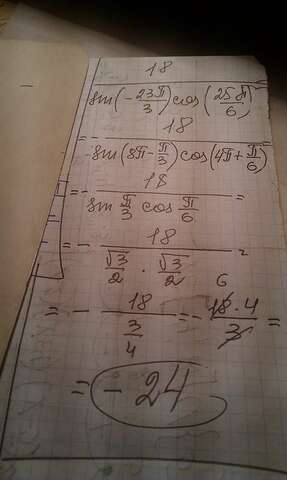 18
sin(-23π/3)cos(25π/6)
= - 18 / sin(8π-π/3)cos(4π+π/6)
= - 18 / sin π/3 cos π/6 =
= - 18 / (√3/2 · √3/2) =
= - 18 / (3/4) = - 18·4 / 3 =
6
= - 24